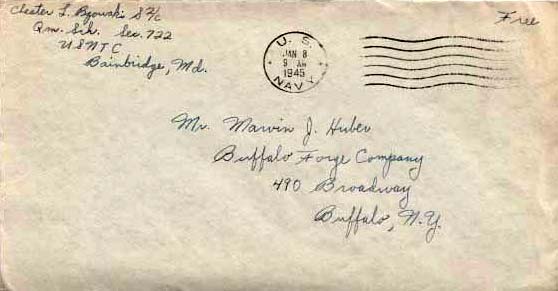 Chester L. Bzowski S 2/c
Qm. Sch. Sec. 722
USNTC
Bainbridge, Md.
Free
U. S.
JAN 8
9 AM
1945
NAVY
Mr. Marvin J. Huber
Buffalo Forge Company
490 Broadway
Buffalo, N.Y.